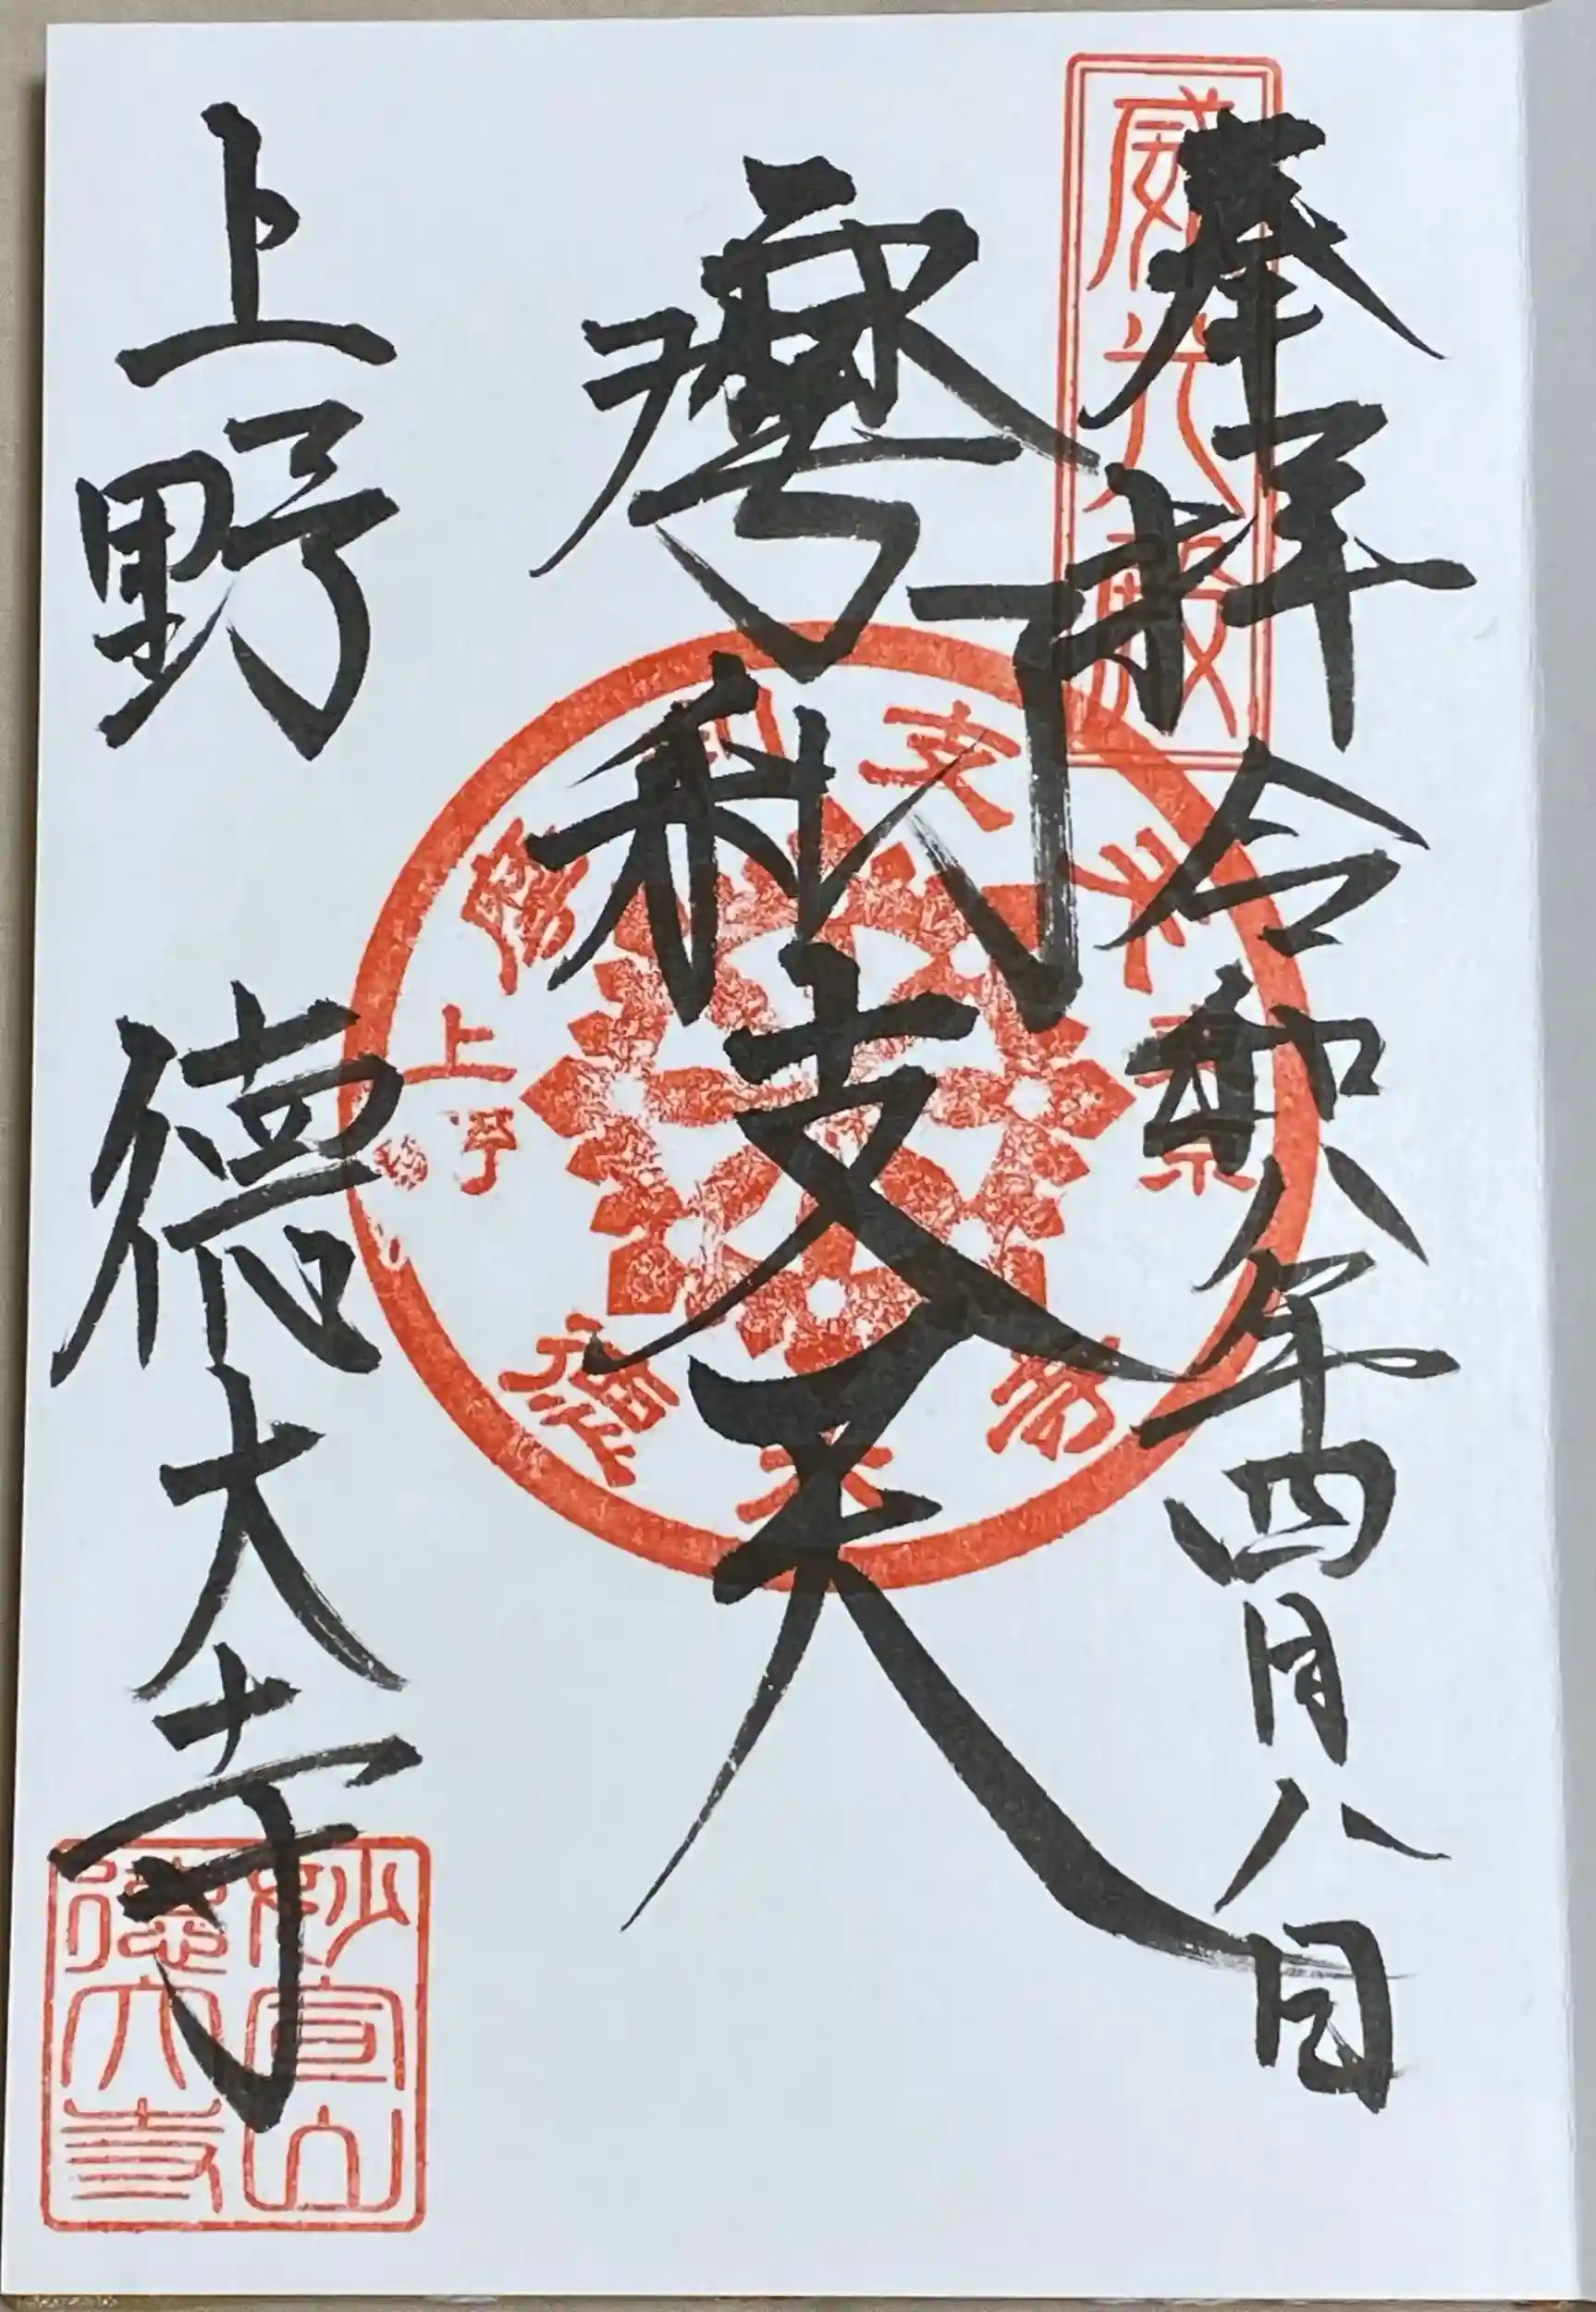 奉拝 令和八年四月八日
摩利支天
上野 徳大寺
威光殿
摩利支天
東京
上野
徳大寺
妙宣山
徳大寺